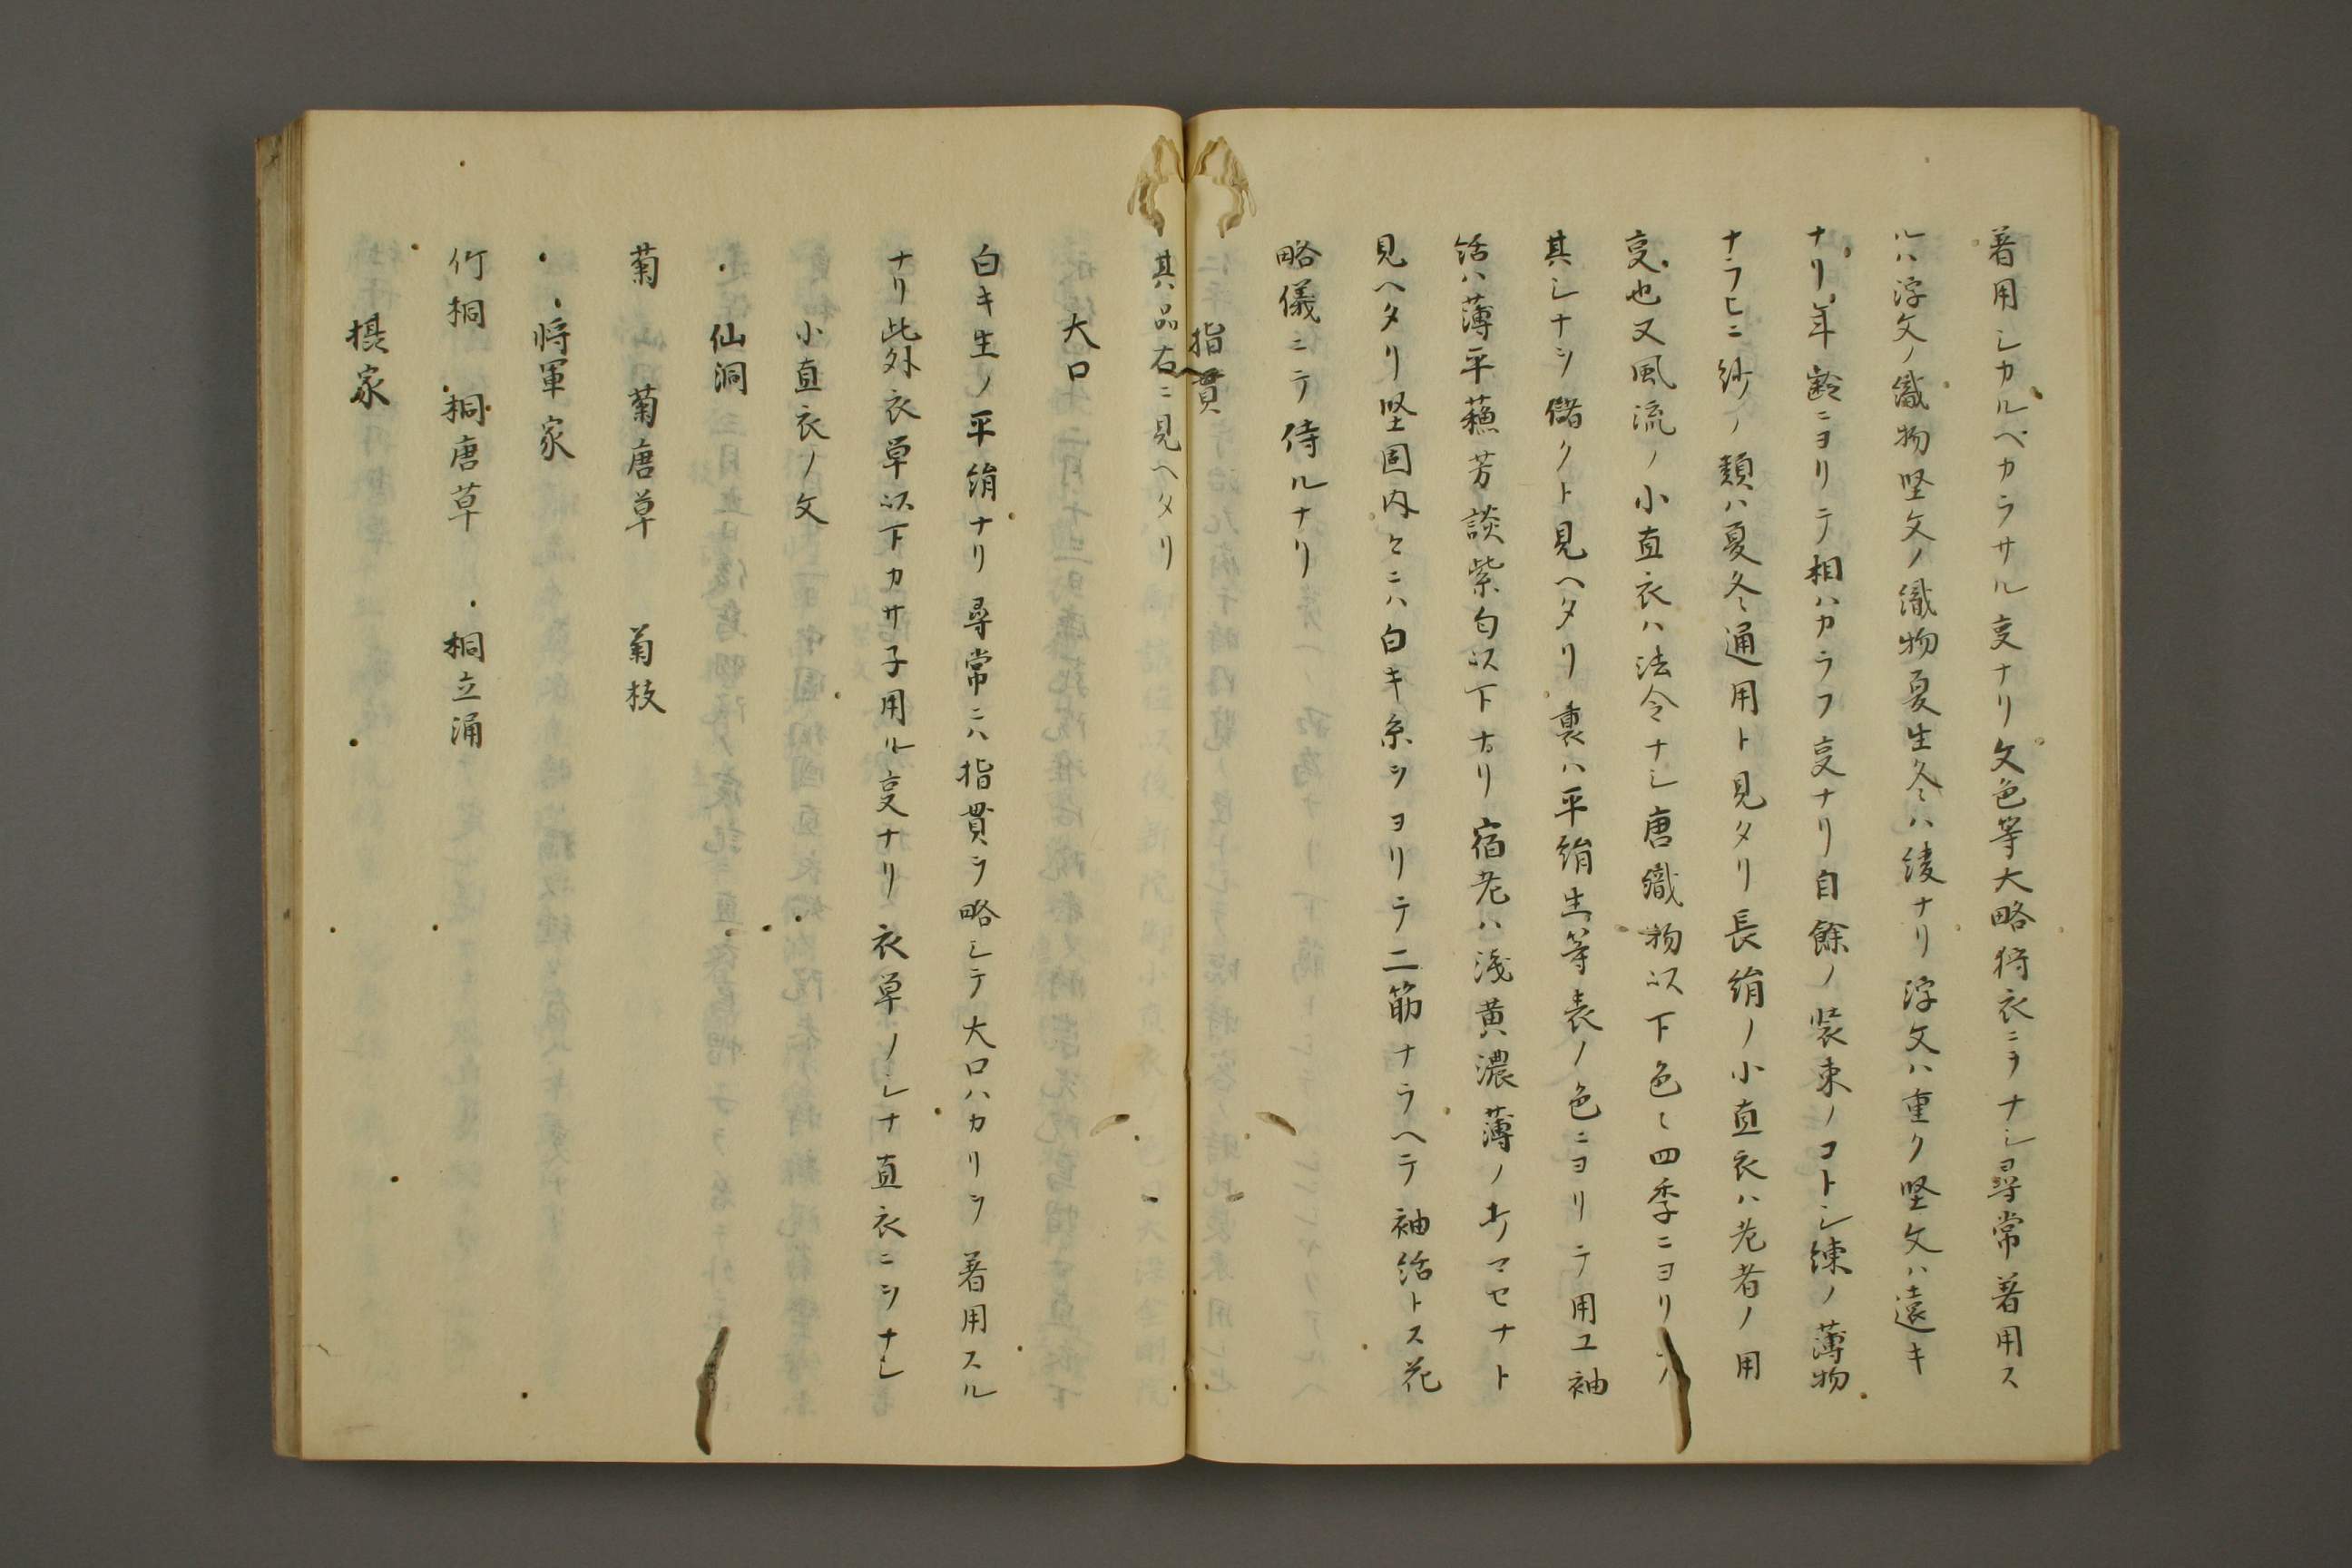 着用シカルベカラサル叓ナリ文色等大略狩衣ニヲナシ尋常着用ス
ルハ浮文ノ織物堅文ノ織物夏生冬ハ綾ナリ浮文ハ重ク堅文ハ遠キ
ナリ年齢ニヨリテ相ハカラフ叓ナリ自餘ノ装束ノコトシ練ノ薄物
ナラヒニ紗ノ類ハ夏冬通用ト見タリ長絹ノ小直衣ハ老者ノ用
叓也又風流ノ小直衣ハ法令ナシ唐織物以下色〻四季ニヨリ
其シナヲ儲クト見ヘタリ裏ハ平絹生等表ノ色ニヨリテ用ユ袖
括ハ薄平蘓芳談紫匂以下ナリ宿老ハ浅黄濃薄ノ左右マセナト
見ヘタリ堅固内々ニハ白キ糸ヲヨリテ二筋ナラヘテ袖括トス花
略儀ニテ侍ルナリ
指貫
其品右ニ見ヘタリ
大口
白キ生ノ平絹ナリ尋常ニハ指貫ヲ略シテ大口ハカリヲ着用スル
ナリ此外衣単以下カサ子用ル叓ナリ衣単ノシナ直衣ニヲナシ
小直衣ノ文
仙洞
菊 菊唐草 菊枝
将軍家
竹桐 桐唐草 桐立涌
摂家